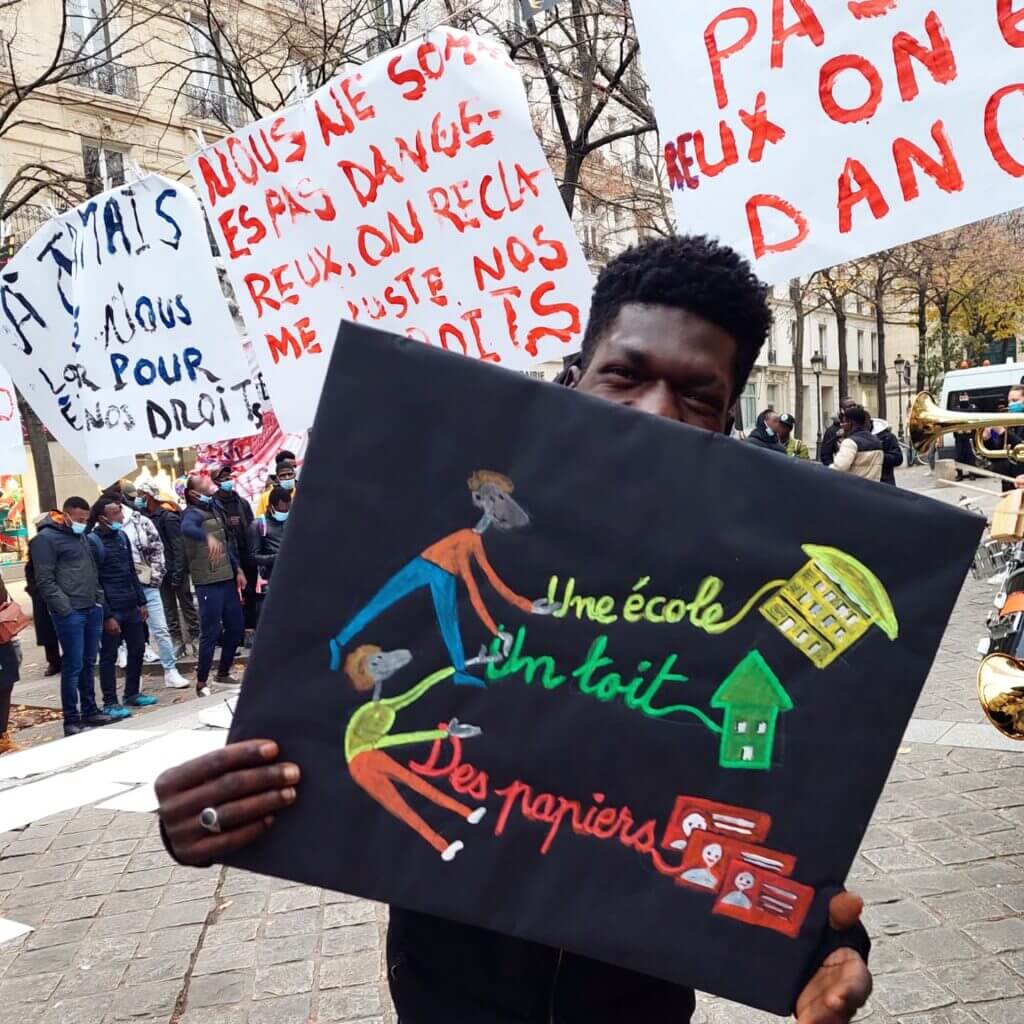 JAMAIS
NOUS
POUR
NOS DROITS
NOUS NE SOMM
ES PAS DANGE-
REUX, ON RECLA-
ME JUSTE NOS
DROITS
PAS
REUX ON
DANG
Une école
Un toit
Des papiers